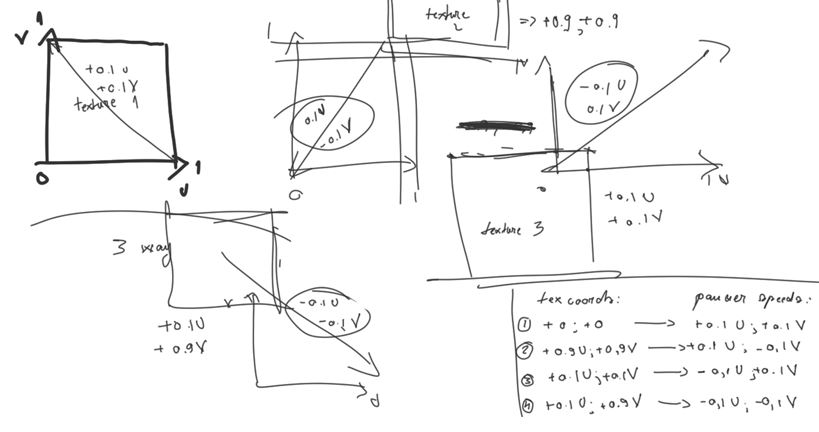 V 1
+0.1U
+0.1V
texture 1
0 1
U
1
0.1U
-0.1V
0 1
texture
2
=> +0.9; +0.9
1V
-0.1U
0.1V
0
1U
+0.1U
+0.1V
texture 3
3 way
+0.1U
+0.9V
V
-0.1U
-0.1V
U
tex coords: panner speeds:
① +0; +0 → +0.1U; +0.1V
② +0.9U; +0,9V → +0.1U; -0.1V
③ +0.1U; +0.1V → -0,1U; +0.1V
④ +0.1U; +0.9V → -0,1U; -0,1V